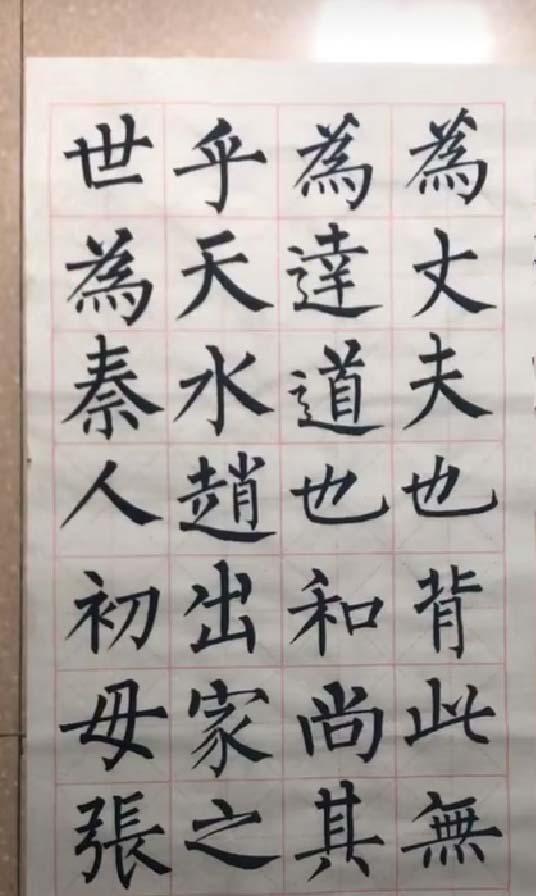 為丈夫也背此無
為達道也和尚其
乎天水趙出家之
世為秦人初母張